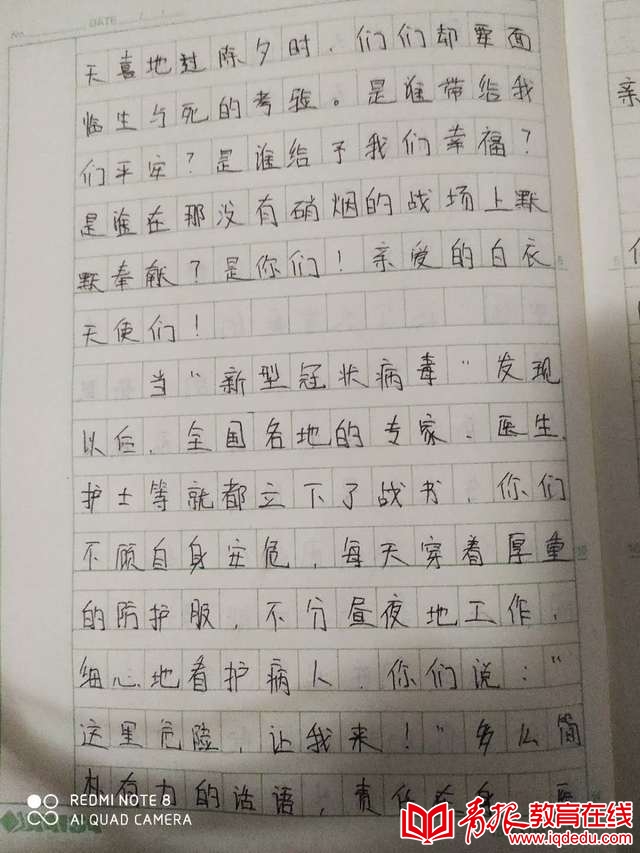 No.
DATE
天喜地过除夕时，们们却要面
临生与死的考验。是谁带给我
们平安？是谁给予我们幸福？
是谁在那没有硝烟的战场上默
默奉献？是你们！亲爱的白衣
天使们！
当“新型冠状病毒”发现
以后，全国各地的专家、医生、
护士等就都立下了战书，你们
不顾自身安危，每天穿着厚重
的防护服，不分昼夜地工作，
细心地看护病人，你们说：“
这里危险，让我来！”多么简
朴有力的话语，责任
亲
REDMI NOTE 8
AI QUAD CAMERA
青报教育在线
www.iqdedu.com